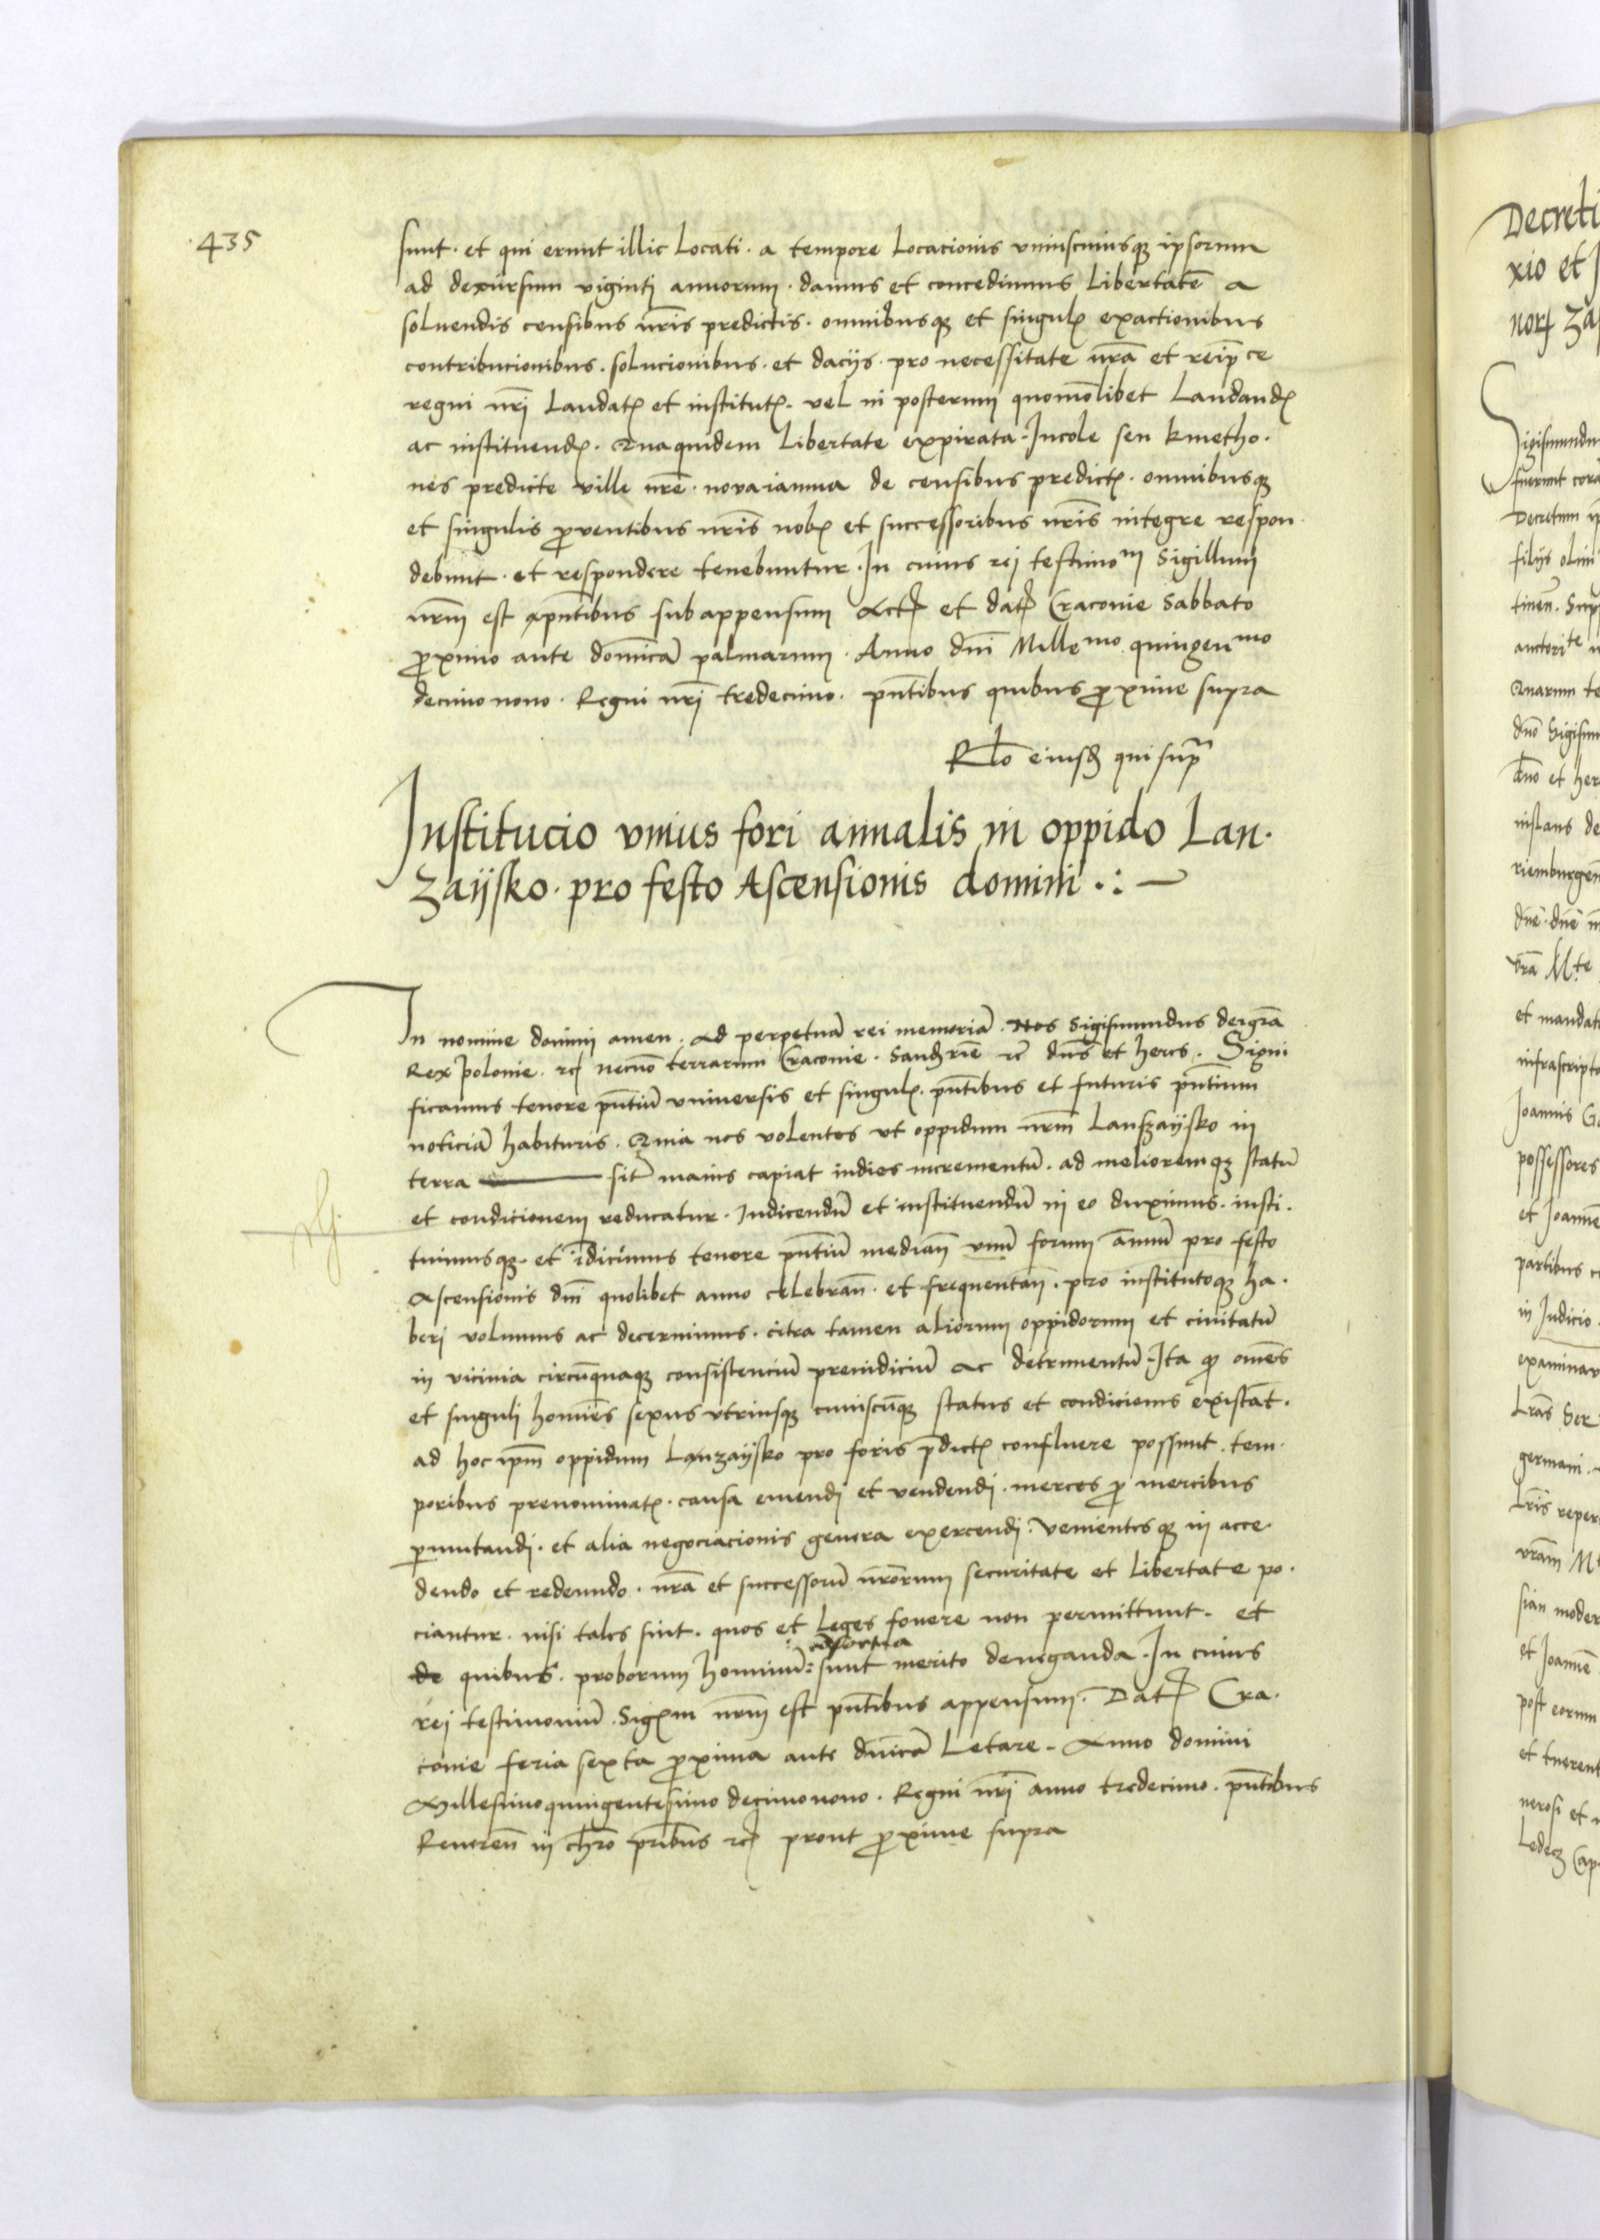 435
sunt. et qui erunt illic Locati. a tempore Locacionis vniuscuiusq ipsorum
ad decursum viginti annorum. damus et concedimus Libertatē a
soluendis censibus nr̃is predictis. omnibusq et singul exactionibus
contribucionibus. solucionibus. et dacijs. pro necessitate nr̃a et reip ce
regni nr̃i Laudat et institut. vel in posterum quomōlibet Laudand
ac instituend. Quaquidem Libertate expirata. Incole seu kmetho.
nes predicte ville nr̃e. de censibus predict. omnibusq
et singulis prouentibus nr̃is nob et successoribus nr̃is integre respon
debunt. et respondere tenebuntur. In cuius rej testimom Sigillum
nr̃m est pn̄tibus subappensum Act et dat Craconie Sabbato
proximo ante domīcā palmarum. Anno dnī Millemo quingenmo
decimo nono. Regni nr̃i tredecimo. pn̄tibus quibus proxime supra
Rlo eiusd qui supra
Institucio vnius fori annalis in oppido Lan.
zaysko. pro festo Ascensionis domini .:~
In nomine domini amen. Ad perpetuā rei memoriā. Nos Sigismundus deigrā
Rex Polonie. rc necnō terrarum Craconie. Sandrīe rc dns et heres. Signi
ficamus tenore pn̄tiū vniuersis et singul. pn̄tibus et futuris pn̄tium
noticiā habituris. Quia nos volentes vt oppidum nr̃m Lanzaysko in
terra sit maius capiat indies incrementū. ad melioremq statū
et condicionem reducatur. Indicendū et instituendū in eo duximus. insti.
tuimusq. et īdicimus tenore pn̄tiū median vnū forum annū pro festo
Ascensionis dnī quolibet anno celebran. et frequentan. pro institutoq ha.
beri volumus ac decernimus. citra tamen aliorum oppidorum et ciuitatū
in vicinia circūquaq consistenciū preiudiciū ac detrimentū. Ita q omēs
et singulj homīes sexus vtriusq cuiuscūq status et condicionis existāt.
ad hoc ipm oppidum Lanzaysko pro foris pdict confluere possunt. tem.
poribus prenominat. causa emendj et vendendj. merces p mercibus
pmutandj. et alia negociacionis genera exercendj. Venientesq in acce.
dendo et redeundo. nr̃a et successorū nr̃orum securitate et Libertate po.
ciantur. nisi tales sint. quos et Leges fouere non permittunt. et
consorcia
de quibus. proborum hominū: sunt merito deneganda. In cuius
rej testimoniū. Sigm nr̃m est pn̄tibus appensum. Dat Cra.
conie feria sexta proxima ante dnicā Letare. Anno domini
Millesimoquingentesimo decimonono. Regni nr̃i anno tredecimo. pn̄tibus
Reueren in chro pribus rc prout proxime supra
Decreti
xio et J
nor za
Sigismundu
fuerunt cora
Decretum ip
filijs olim
tinen. Sup
auctorite n
Quarum te
dno Sigism
dno et her
instans de
riemburgen
dne. dne n
vrā Mte
et mandat
infrascripto
Joannis Go
possessores
et Joanne
partibus c
in Judicio.
examinav
Lrās Ser
germani.
Lris reper
vram Mt
sian moder
et Joanne
post eorum
et tuerent
nerosi et
Ledecz Cap